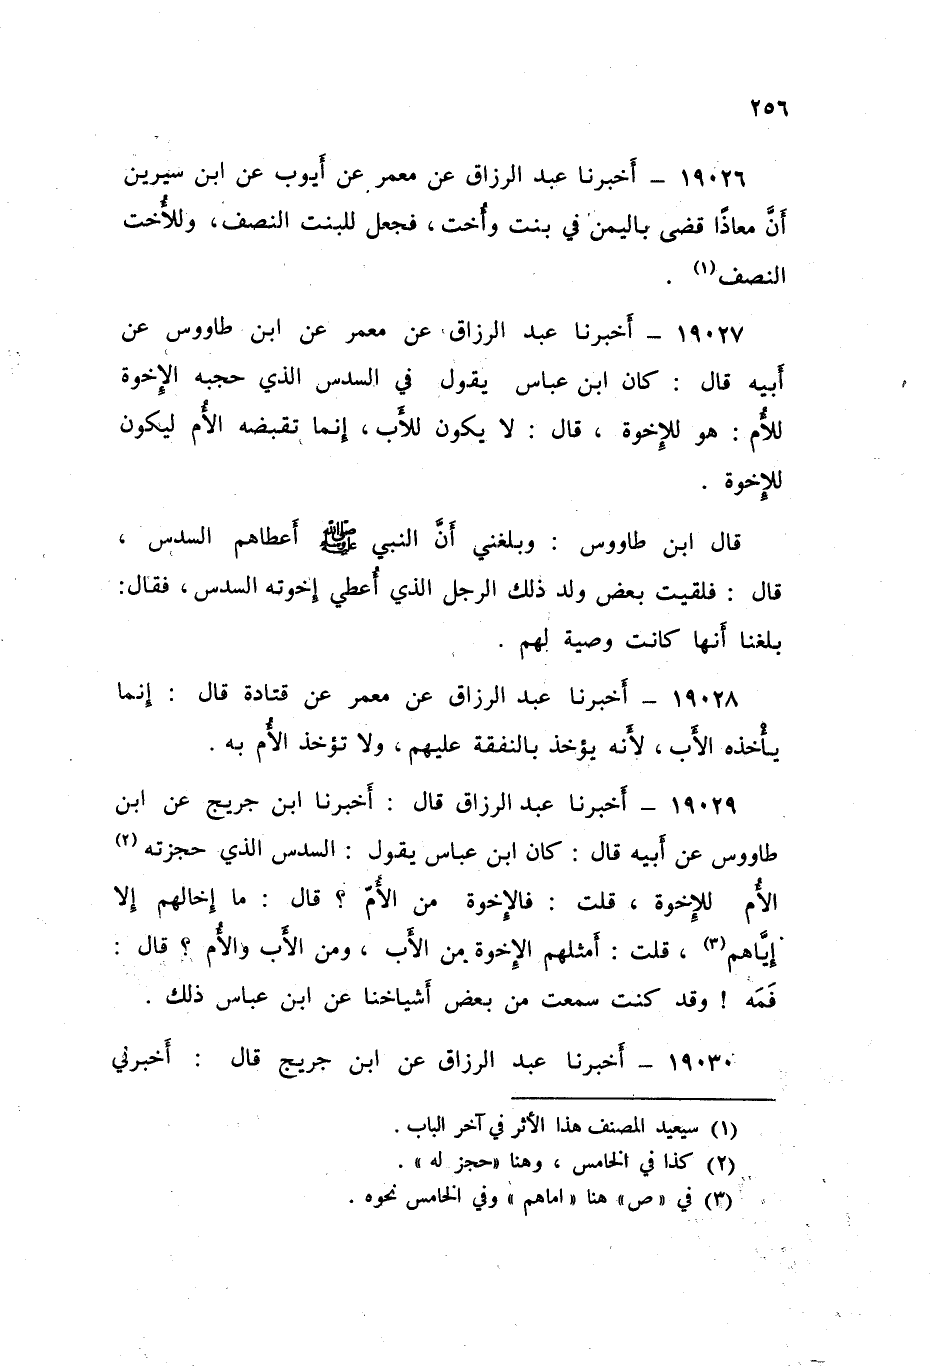 ٢٥٦
١٩٠٢٦ – أَخبرنا عبد الرزاق عن معمر عن أَيوب عن ابن سيرين
أَنَّ معاذًا قضى باليمن في بنت وأُخت ، فجعل للبنت النصف ، وللأُخت
النصف (١) .
١٩٠٢٧ – أَخبرنا عبد الرزاق عن معمر عن ابن طاووس عن
أَبيه قال : كان ابن عباس يقول في السدس الذي حجبه الإِخوة
للأُم : هو للإِخوة ، قال : لا يكون للأَب ، إِنما تقبضه الأُم ليكون
للإِخوة .
قال ابن طاووس : وبلغني أَنَّ النبي ﷺ أَعطاهم السدس ،
قال : فلقيت بعض ولد ذلك الرجل الذي أُعطي إِخوته السدس ، فقال :
بلغنا أَنها كانت وصية لهم .
١٩٠٢٨ – أَخبرنا عبد الرزاق عن معمر عن قتادة قال : إِنما
يأْخذه الأَب ، لأَنه يؤخذ بالنفقة عليهم ، ولا تؤخذ الأُم به .
١٩٠٢٩ – أَخبرنا عبد الرزاق قال : أَخبرنا ابن جريج عن ابن
طاووس عن أَبيه قال : كان ابن عباس يقول : السدس الذي حجزته (٢)
الأُم للإِخوة ، قلت : فالإِخوة من الأُمّ ؟ قال : ما إِخالهم إِلا
إِيَّاهم (٣) ، قلت : أَمثلهم الإِخوة من الأَب ، ومن الأَب والأُم ؟ قال :
فَمَه ! وقد كنت سمعت من بعض أَشياخنا عن ابن عباس ذلك .
١٩٠٣٠ – أَخبرنا عبد الرزاق عن ابن جريج قال : أَخبرني
(١) سيعيد المصنف هذا الأثر في آخر الباب .
(٢) كذا في الخامس ، وهنا «حجز له» .
(٣) في «ص» هنا «اماهم» وفي الخامس نحوه .